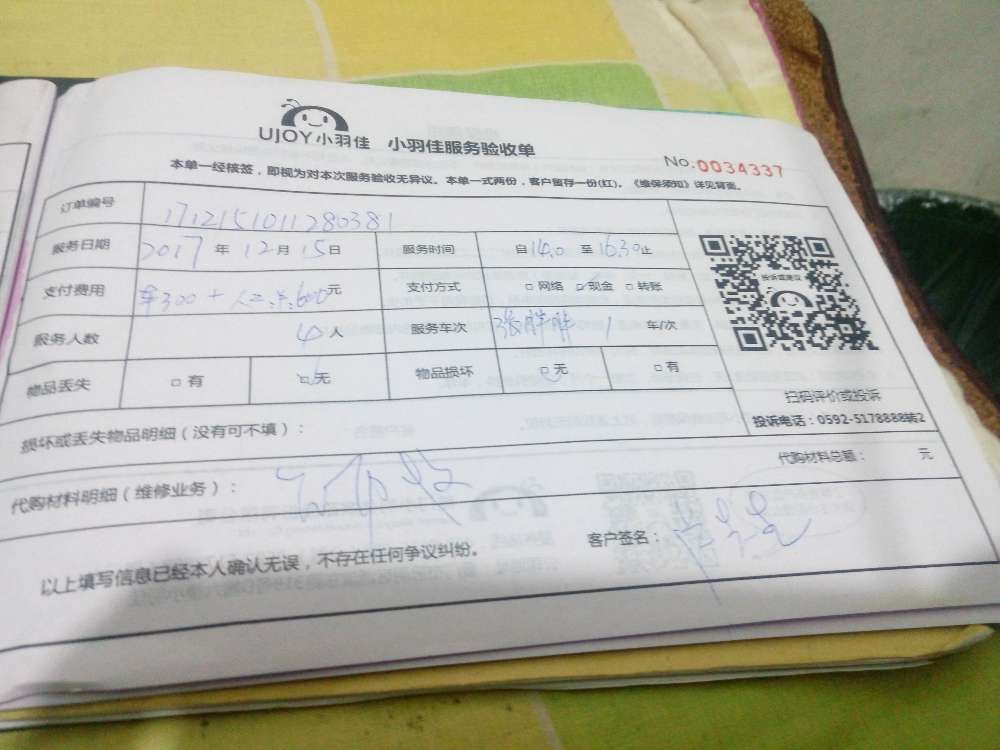 UJOY小羽佳 小羽佳服务验收单
No:0034337
本单一经核签，即视为对本次服务验收无异议。本单一式两份，客户留存一份(红)。《维保须知》详见背面。
订单编号 1712151011280381
服务日期 2017 年 12 月 15 日 服务时间 自 14.0 至 16.30 止
支付费用 车300 + 人工费600 元 支付方式 □网络 □现金 □转账
服务人数 4 人 服务车次 张胖胖 1 车/次
物品丢失 □有 □无 物品损坏 □无 □有
投诉或建议
扫码评价或投诉
投诉电话：0592-5178888转2
损坏或丢失物品明细（没有可不填）：
代购材料明细（维修业务）： 代购材料总额： 元
以上填写信息已经本人确认无误，不存在任何争议纠纷。 客户签名：